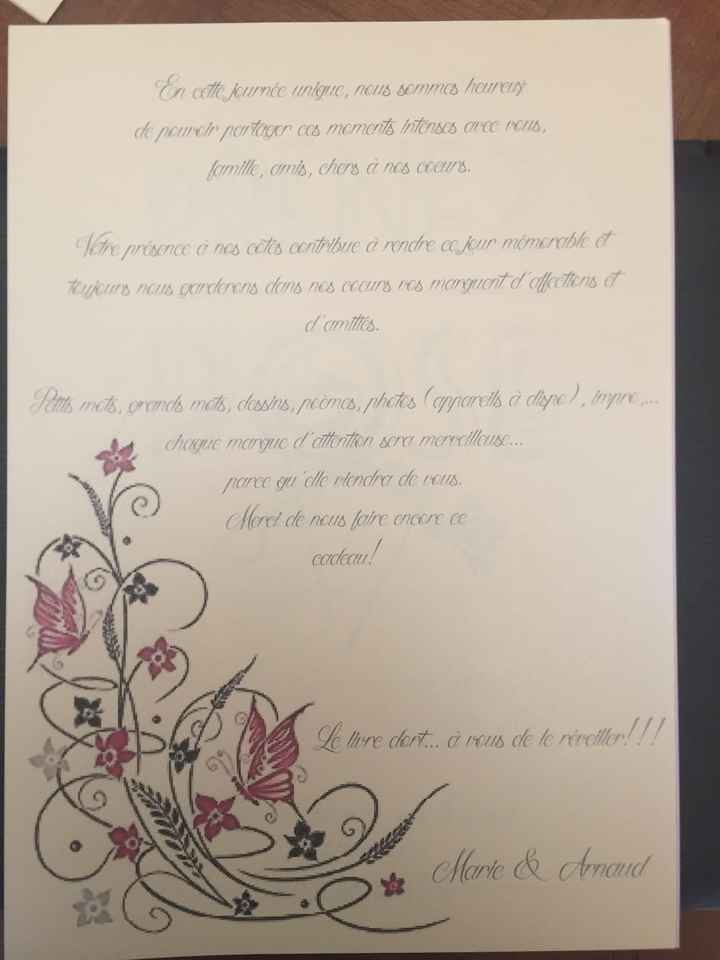 En cette journée unique, nous sommes heureux
de pouvoir partager ces moments intenses avec vous,
famille, amis, chers à nos coeurs.
Votre présence à nos côtés contribue à rendre ce jour mémorable et
toujours nous garderons dans nos coeurs vos marquent d'affections et
d'amitiés.
Petits mots, grands mots, dessins, poèmes, photos (appareils à dispo), impro,...
chaque marque d'attention sera merveilleuse...
parce qu'elle viendra de vous.
Merci de nous faire encore ce
cadeau!
Le livre dort... à vous de le réveiller!!!
Marie & Arnaud